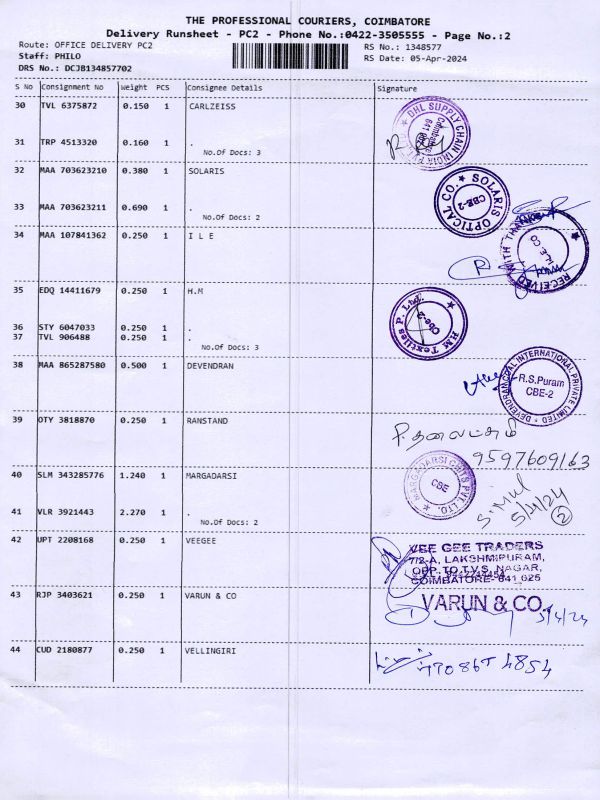 THE PROFESSIONAL COURIERS, COIMBATORE
Delivery Runsheet - PC2 - Phone No.:0422-3505555 - Page No.:2
Route: OFFICE DELIVERY PC2
RS No.: 1348577
Staff: PHILO
RS Date: 05-Apr-2024
DRS No.: DCJB134857702
S No Consignment No Weight PCS Consignee Details Signature
30 TVL 6375872 0.150 1 CARLZEISS
DHL SUPPLY CHAIN
Coimbatore
641
31 TRP 4513320 0.160 1 .
No.Of Docs: 3
32 MAA 703623210 0.380 1 SOLARIS
SOLARIS OPTICAL CO.
CBE-2
33 MAA 703623211 0.690 1 .
No.Of Docs: 2
34 MAA 107841362 0.250 1 I L E
RECEIVED WITH THANKS
35 EDQ 14411679 0.250 1 H.M
HM Textiles P. Ltd.
Cbe-2
36 STY 6047033 0.250 1 .
37 TVL 906488 0.250 1 .
No.Of Docs: 3
38 MAA 865287580 0.500 1 DEVENDRAN
DEVENDRAN INTERNATIONAL PRIVATE LIMITED
R.S.Puram
CBE-2
39 OTY 3818870 0.250 1 RANSTAND
9597609163
40 SLM 343285776 1.240 1 MARGADARSI
MARGADARSI CHITS PVT. LTD.
CBE
5/4/24
2
41 VLR 3921443 2.270 1 .
No.Of Docs: 2
42 UPT 2208168 0.250 1 VEEGEE
VEE GEE TRADERS
7/2-A, LAKSHMIPURAM,
OPP. TO.T.V.S. NAGAR,
COIMBATORE- 641 025
43 RJP 3403621 0.250 1 VARUN & CO
VARUN & CO.
5/4/24
44 CUD 2180877 0.250 1 VELLINGIRI